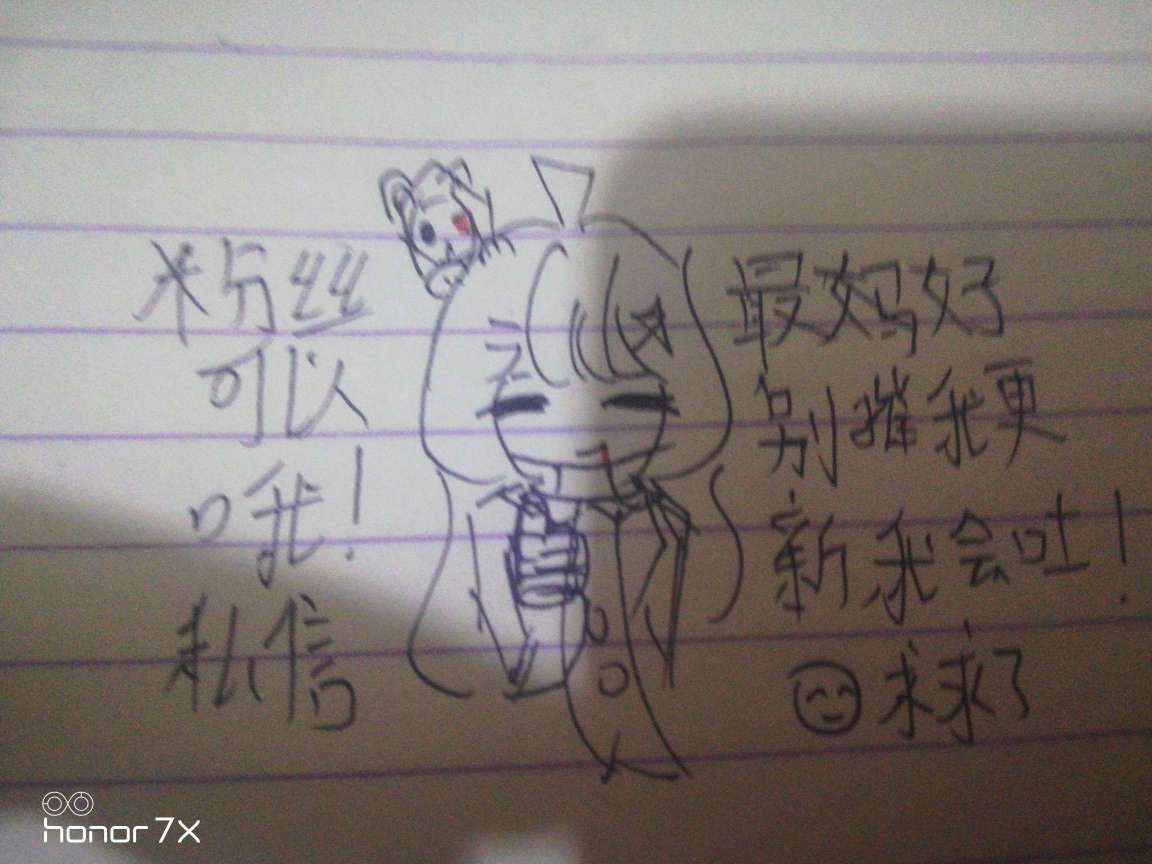 粉丝
可以
哦!
私信
最妈好
别摧我更
新我会吐!
求求了
honor 7X